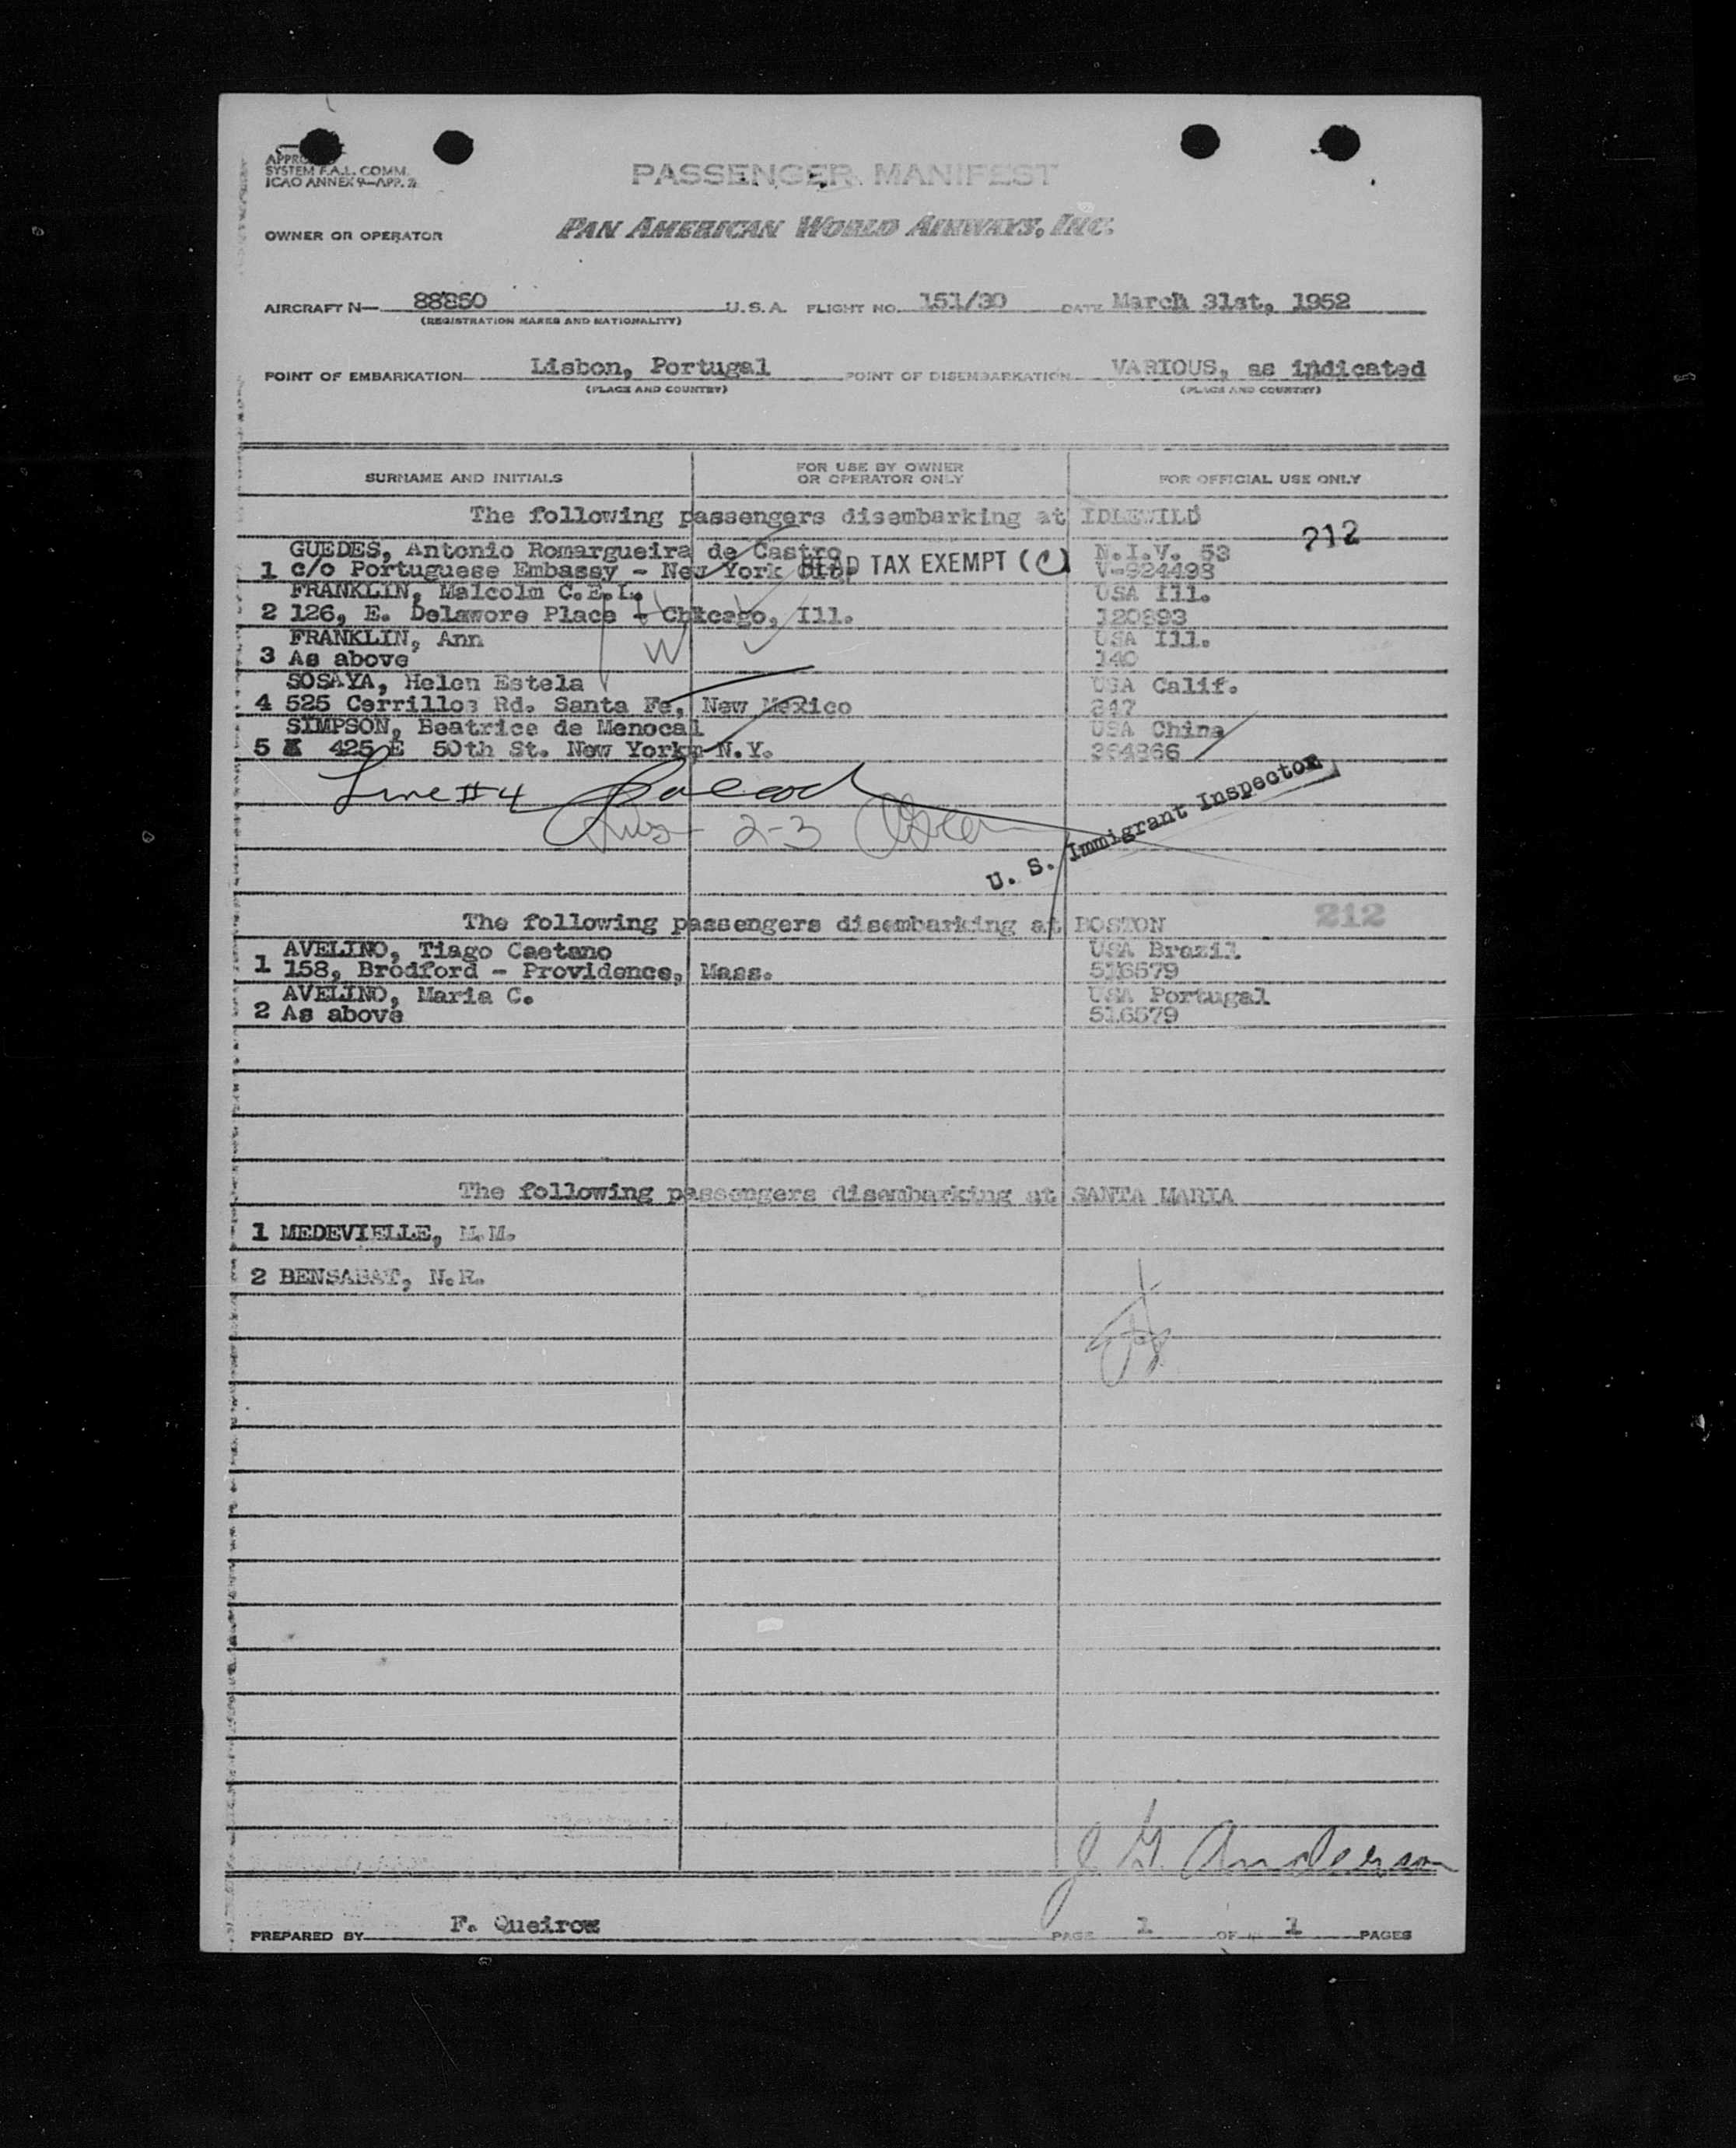 SYSTEM F.A.L. COMM.
ICAO ANNEX 9—APP. 2
PASSENGER MANIFEST
OWNER OR OPERATOR PAN AMERICAN WORLD AIRWAYS, INC.
AIRCRAFT N— 88860 U.S.A. FLIGHT NO. 151/30 DATE March 31st, 1952
(REGISTRATION MARKS AND NATIONALITY)
POINT OF EMBARKATION Lisbon, Portugal POINT OF DISEMBARKATION VARIOUS, as indicated
(PLACE AND COUNTRY) (PLACE AND COUNTRY)
SURNAME AND INITIALS FOR USE BY OWNER OR OPERATOR ONLY FOR OFFICIAL USE ONLY
The following passengers disembarking at IDLEWILD
212
GUEDES, Antonio Romargueira de Castro N.I.V. 53
1 c/o Portuguese Embassy - New York HEAD TAX EXEMPT (C) V-924498
FRANKLIN, Malcolm C.E.L. USA Ill.
2 126, E. Delawore Place - Chicago, Ill. 120893
FRANKLIN, Ann USA Ill.
3 As above 140
SOSAYA, Helen Estela USA Calif.
4 525 Cerrillos Rd. Santa Fe, New Mexico 247
SIMPSON, Beatrice de Menocal USA China
5 425 E 50th St. New York N.Y.
Line #4
2-3
U. S. Immigrant Inspector
The following passengers disembarking at BOSTON 212
AVELINO, Tiago Caetano USA Brazil
1 158, Brodford - Providence, Mass. 516579
AVELINO, Maria C. USA Portugal
2 As above 516579
The following passengers disembarking at SANTA MARIA
1 MEDEVIELLE, M.M.
2 BENSABAT, N.R.
J. G. Anderson
PREPARED BY F. Queiros PAGE 1 OF 1 PAGES